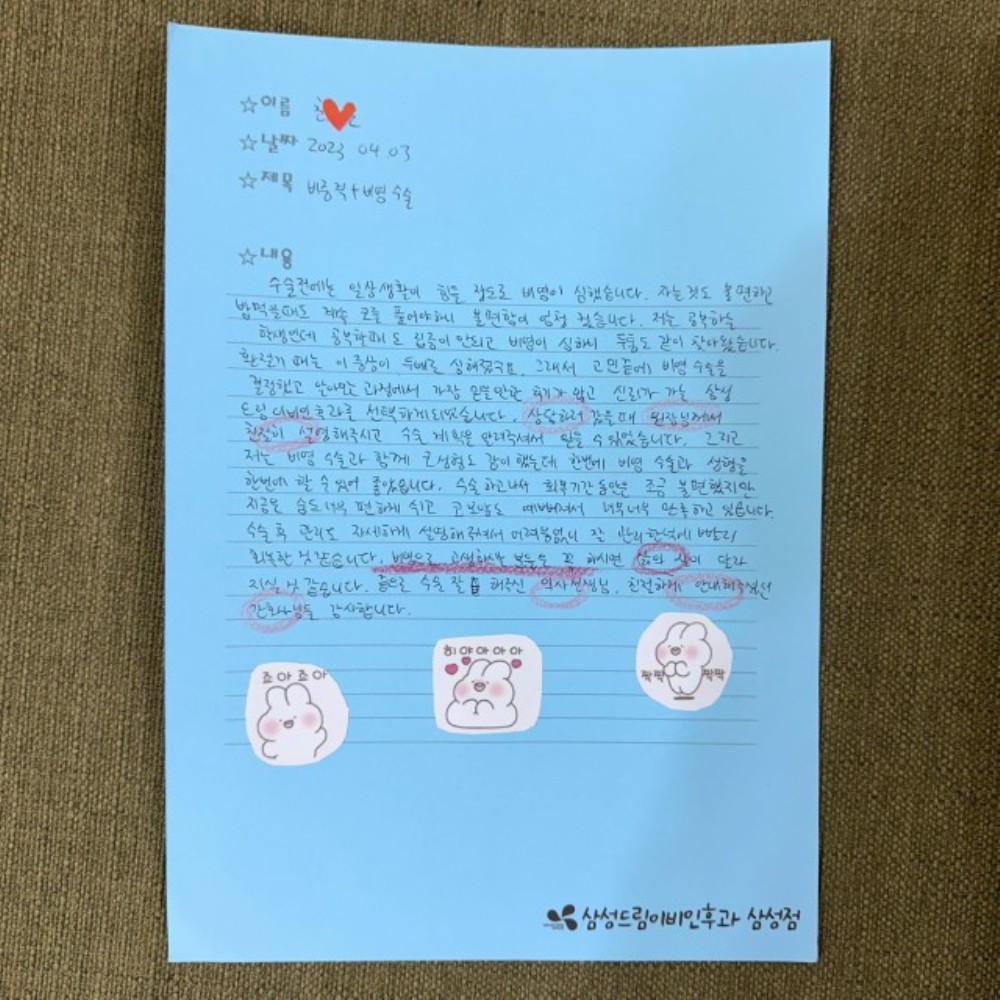 ☆이름
☆날짜 2023 04 03
☆제목 비중격+비염 수술
☆내용
수술전에는 일상생활이 힘들 정도로 비염이 심했습니다. 자는것도 불편하고
밥먹을때도 계속 코를 풀어야하니 불편함이 엄청 컸습니다. 저는 공부하는
학생인데 공부할때도 집중이 안되고 비염이 심하니 두통도 같이 찾아왔습니다.
환절기 때는 이 증상이 두배로 심해졌구요. 그래서 고민끝에 비염 수술을
결정했고 알아보는 과정에서 가장 믿을만한 후기가 많고 신뢰가 가는 삼성
드림이비인후과로 선택하게되었습니다. 상담하러 갔을때 원장님께서
친절히 설명해주시고 수술 계획을 알려주셔서 믿을 수 있었습니다. 그리고
저는 비염 수술과 함께 코성형도 같이 했는데 한번에 비염 수술과 성형을
한번에 할 수 있어 좋았습니다. 수술 하고나서 회복기간 동안은 조금 불편했지만
지금은 숨도 너무 편하게 쉬고 코모양도 예뻐져서 너무너무 만족하고 있습니다.
수술 후 관리도 자세하게 설명해주셔서 어려움없이 잘 관리한덕에 빨리
회복한 것 같습니다. 비염으로 고생하시는 분들은 꼭 하시면 삶의 질이 달라
지실 것 같습니다. 수술 잘 해주신 의사선생님, 친절하게 안내해주셨던
간호사님들 감사합니다.
죠아죠아
히야아아아
짝짝 짝짝
삼성드림이비인후과 삼성점